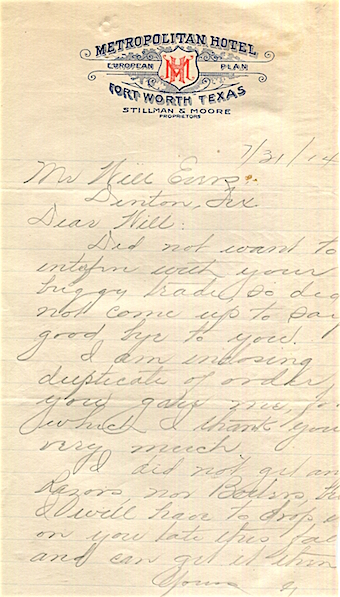 METROPOLITAN HOTEL
EUROPEAN PLAN
MH
FORT WORTH TEXAS
STILLMAN & MOORE
PROPRIETORS
7/31/14
Mr Will Evers
Denton, Tex
Dear Will:
Did not want to
interfere with your
buggy trade, so did
not come up to say
good bye to you.
I am inclosing
duplicate of order,
you gave me, fo
which I thank you
very much
I did not get an
Razors, nor
I will have to drop
on you late this fal
and can get it then
Yours